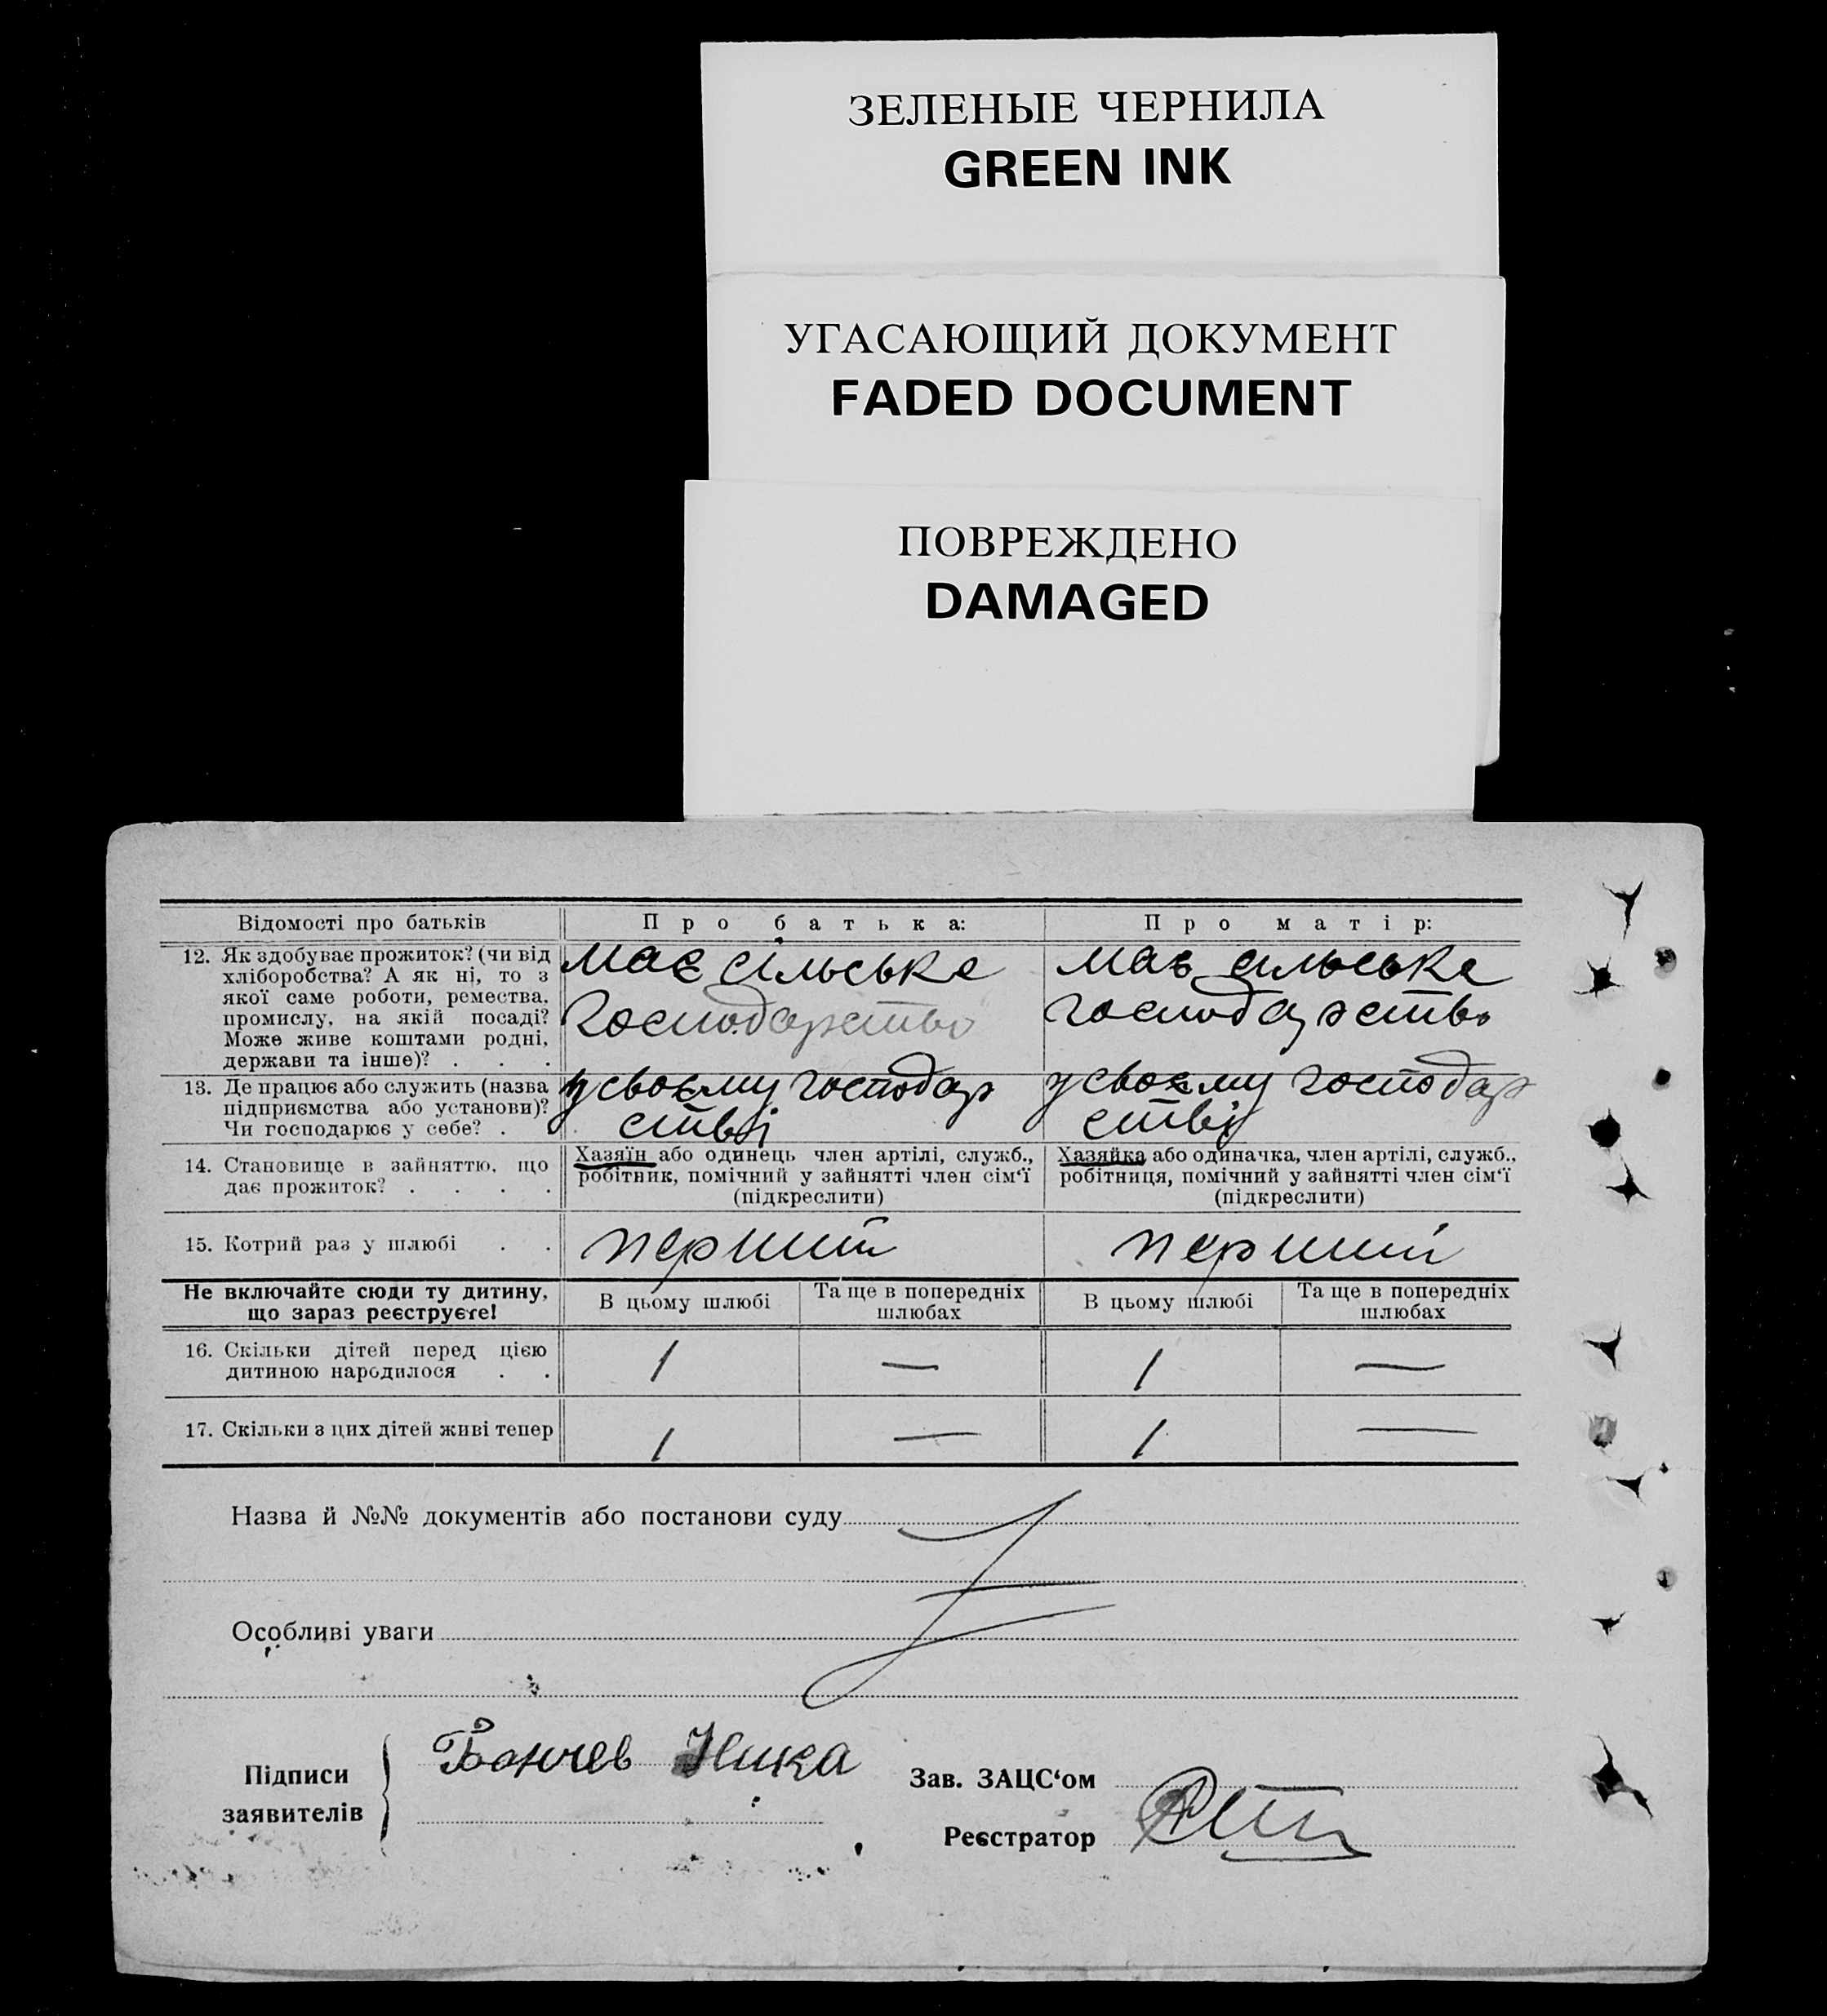 ЗЕЛЕНЫЕ ЧЕРНИЛА
GREEN INK
УГАСАЮЩИЙ ДОКУМЕНТ
FADED DOCUMENT
ПОВРЕЖДЕНО
DAMAGED
Відомості про батьків
Про батька:
Про матір:
12. Як здобуває прожиток? (чи від
хліборобства? А як ні, то з
якої саме роботи, ремества,
промислу, на якій посаді?
Може живе коштами родні,
держави та інше)? . . .
має сільське
господарство
має сільське
господарство
13. Де працює або служить (назва
підприємства або установи)?
Чи господарює у себе? .
у своєму господар
стві
у своєму господар
стві
14. Становище в зайняттю, що
дає прожиток? . . . .
Хазяїн або одинець член артілі, служб.,
робітник, помічний у зайнятті член сім'ї
(підкреслити)
Хазяйка або одиначка, член артілі, служб.,
робітниця, помічний у зайнятті член сім'ї
(підкреслити)
15. Котрий раз у шлюбі . .
перший
перший
Не включайте сюди ту дитину,
що зараз реєструєте!
В цьому шлюбі
Та ще в попередніх
шлюбах
В цьому шлюбі
Та ще в попередніх
шлюбах
16. Скільки дітей перед цією
дитиною народилося . .
1 — 1 —
17. Скільки з цих дітей живі тепер
1 — 1 —
Назва й №№ документів або постанови суду
Особливі уваги
Підписи
заявителів
Бончев Ника
Зав. ЗАЦС'ом
Реєстратор